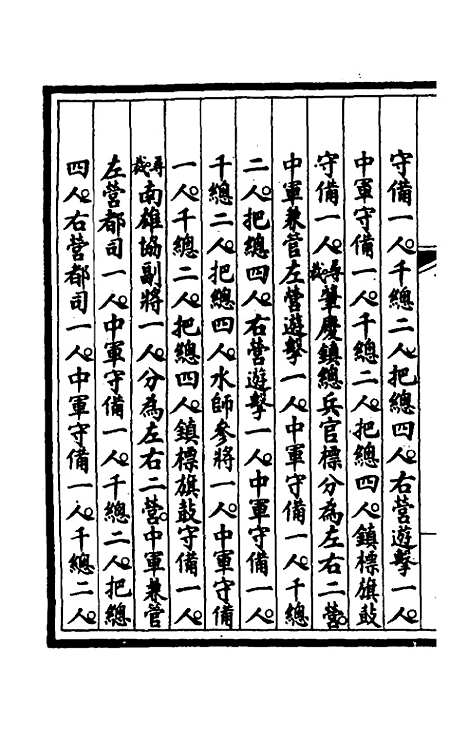 守備一人千總二人把總四人右營遊擊一人
中軍守備一人千總二人把總四人鎮標旗鼓
守備一人尋裁肇慶鎮總兵官標分為左右二營
中軍兼管左營遊擊一人中軍守備一人千總
二人把總四人右營遊擊一人中軍守備一人
千總二人把總四人水師參將一人中軍守備
一人千總二人把總四人鎮標旗鼓守備一人
尋裁南雄協副將一人分為左右二營中軍兼管
左營都司一人中軍守備一人千總二人把總
四人右營都司一人中軍守備一人千總二人